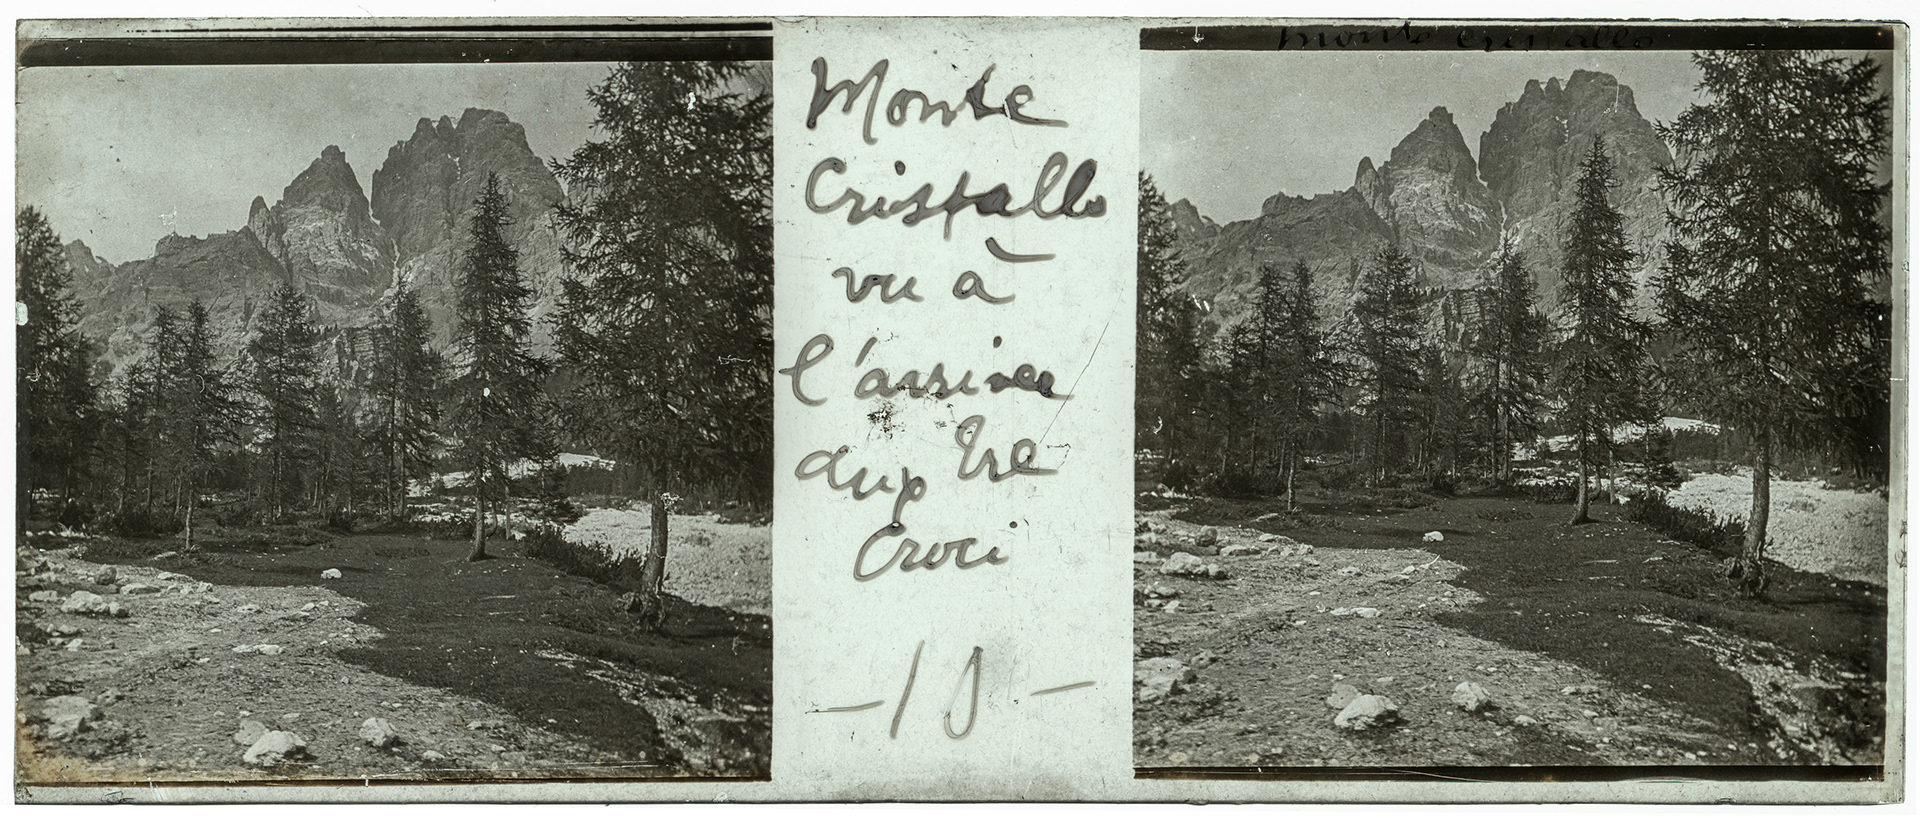 Monte
Cristallo
vu à
l'arrivée
aux Tre
Croci
- 10 -
Monte Cristallo